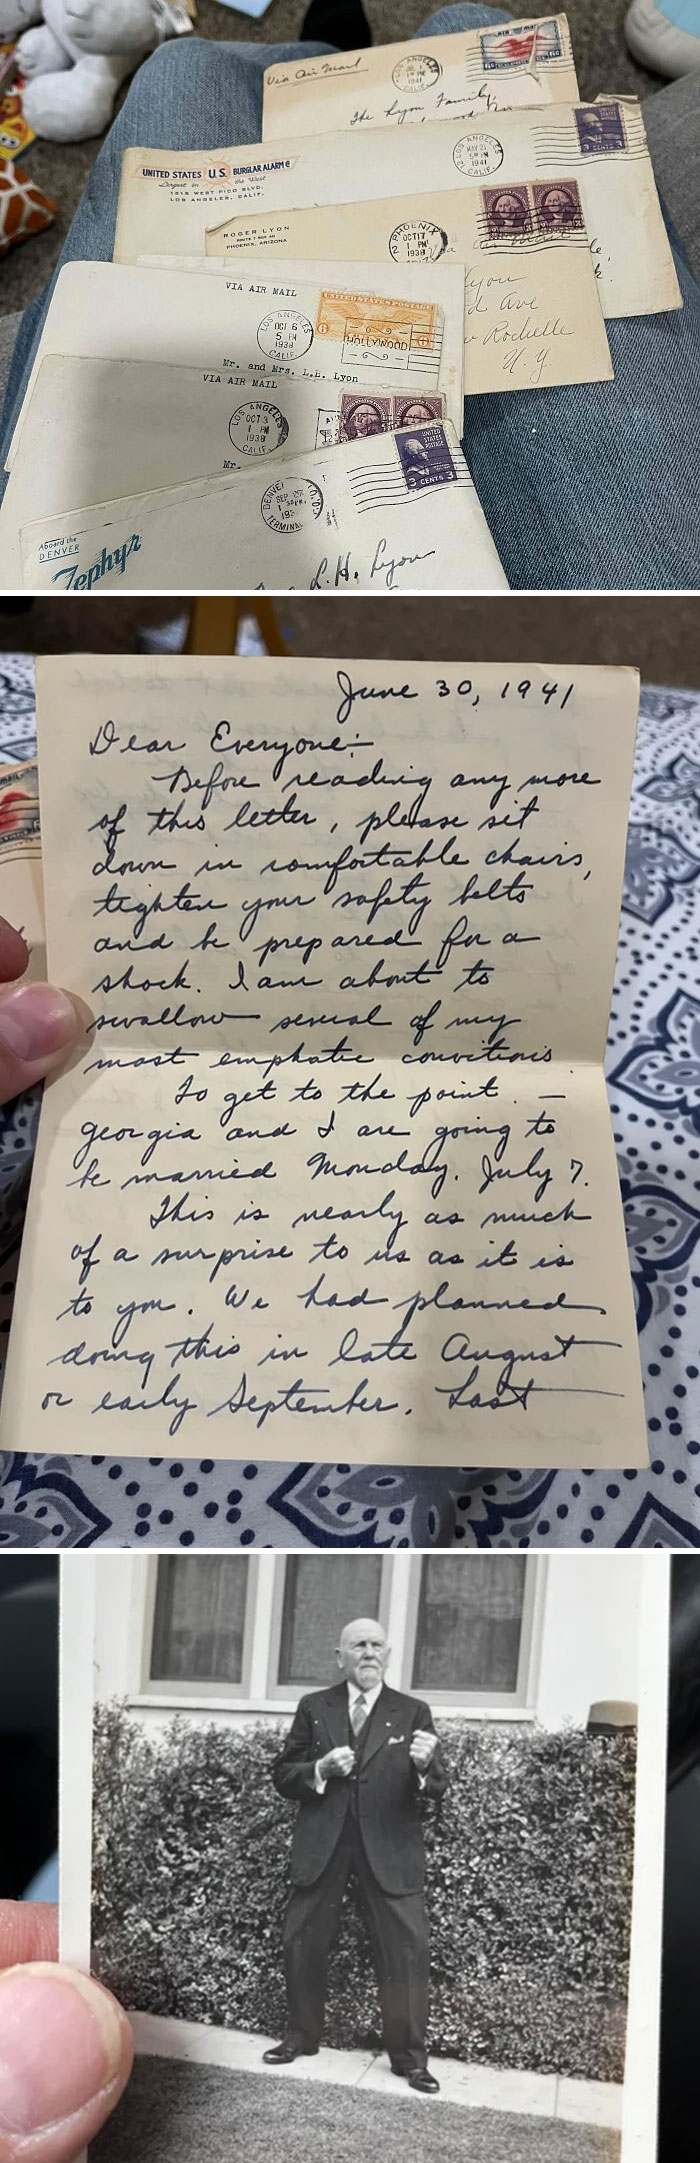 Via Air Mail
LOS ANGELES
1941
CALIF.
AIR MAIL
6¢
The Lyon Family,
UNITED STATES U.S. BURGLAR ALARM Co
Largest in the West
1819 WEST PICO BLVD.
LOS ANGELES, CALIF.
LOS ANGELES
MAY 21
5 PM
1941
CALIF.
3 CENTS 3
ROGER LYON
ROUTE 7 BOX
PHOENIX, ARIZONA
PHOENIX
OCT 17
1 PM
1938
Via Air Mail
Lyon
d Ave
w Rochelle
N.Y.
VIA AIR MAIL
LOS ANGELES
OCT 6
5 PM
1938
CALIF.
UNITED STATES POSTAGE
6
HOLLYWOOD
Mr. and Mrs. L.H. Lyon
VIA AIR MAIL
LOS ANGELES
OCT 3
1 PM
1938
CALIF.
Mr.
DENVER
SEP
193
TERMINAL
UNITED
STATES
POSTAGE
3 CENTS 3
Aboard the
DENVER
Zephyr
L.H. Lyon
June 30, 1941
Dear Everyone:—
Before reading any more
of this letter, please sit
down in comfortable chairs,
tighten your safety belts
and be prepared for a
shock. I am about to
swallow several of my
most emphatic convitions.
To get to the point. —
Georgia and I are going to
be married Monday, July 7.
This is nearly as much
of a surprise to us as it is
to you. We had planned
doing this in late August
or early September. Last